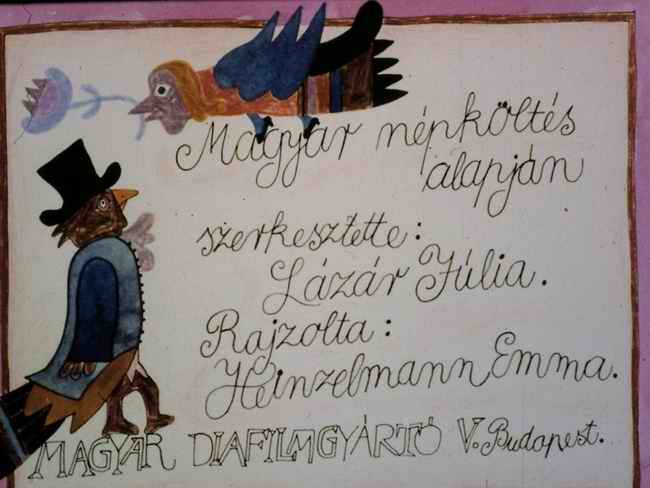 Magyar népköltés
alapján
szerkesztette:
Lázár Júlia.
Rajzolta:
Heinzelmann Emma.
MAGYAR DIAFILMGYÁRTÓ V. Budapest.